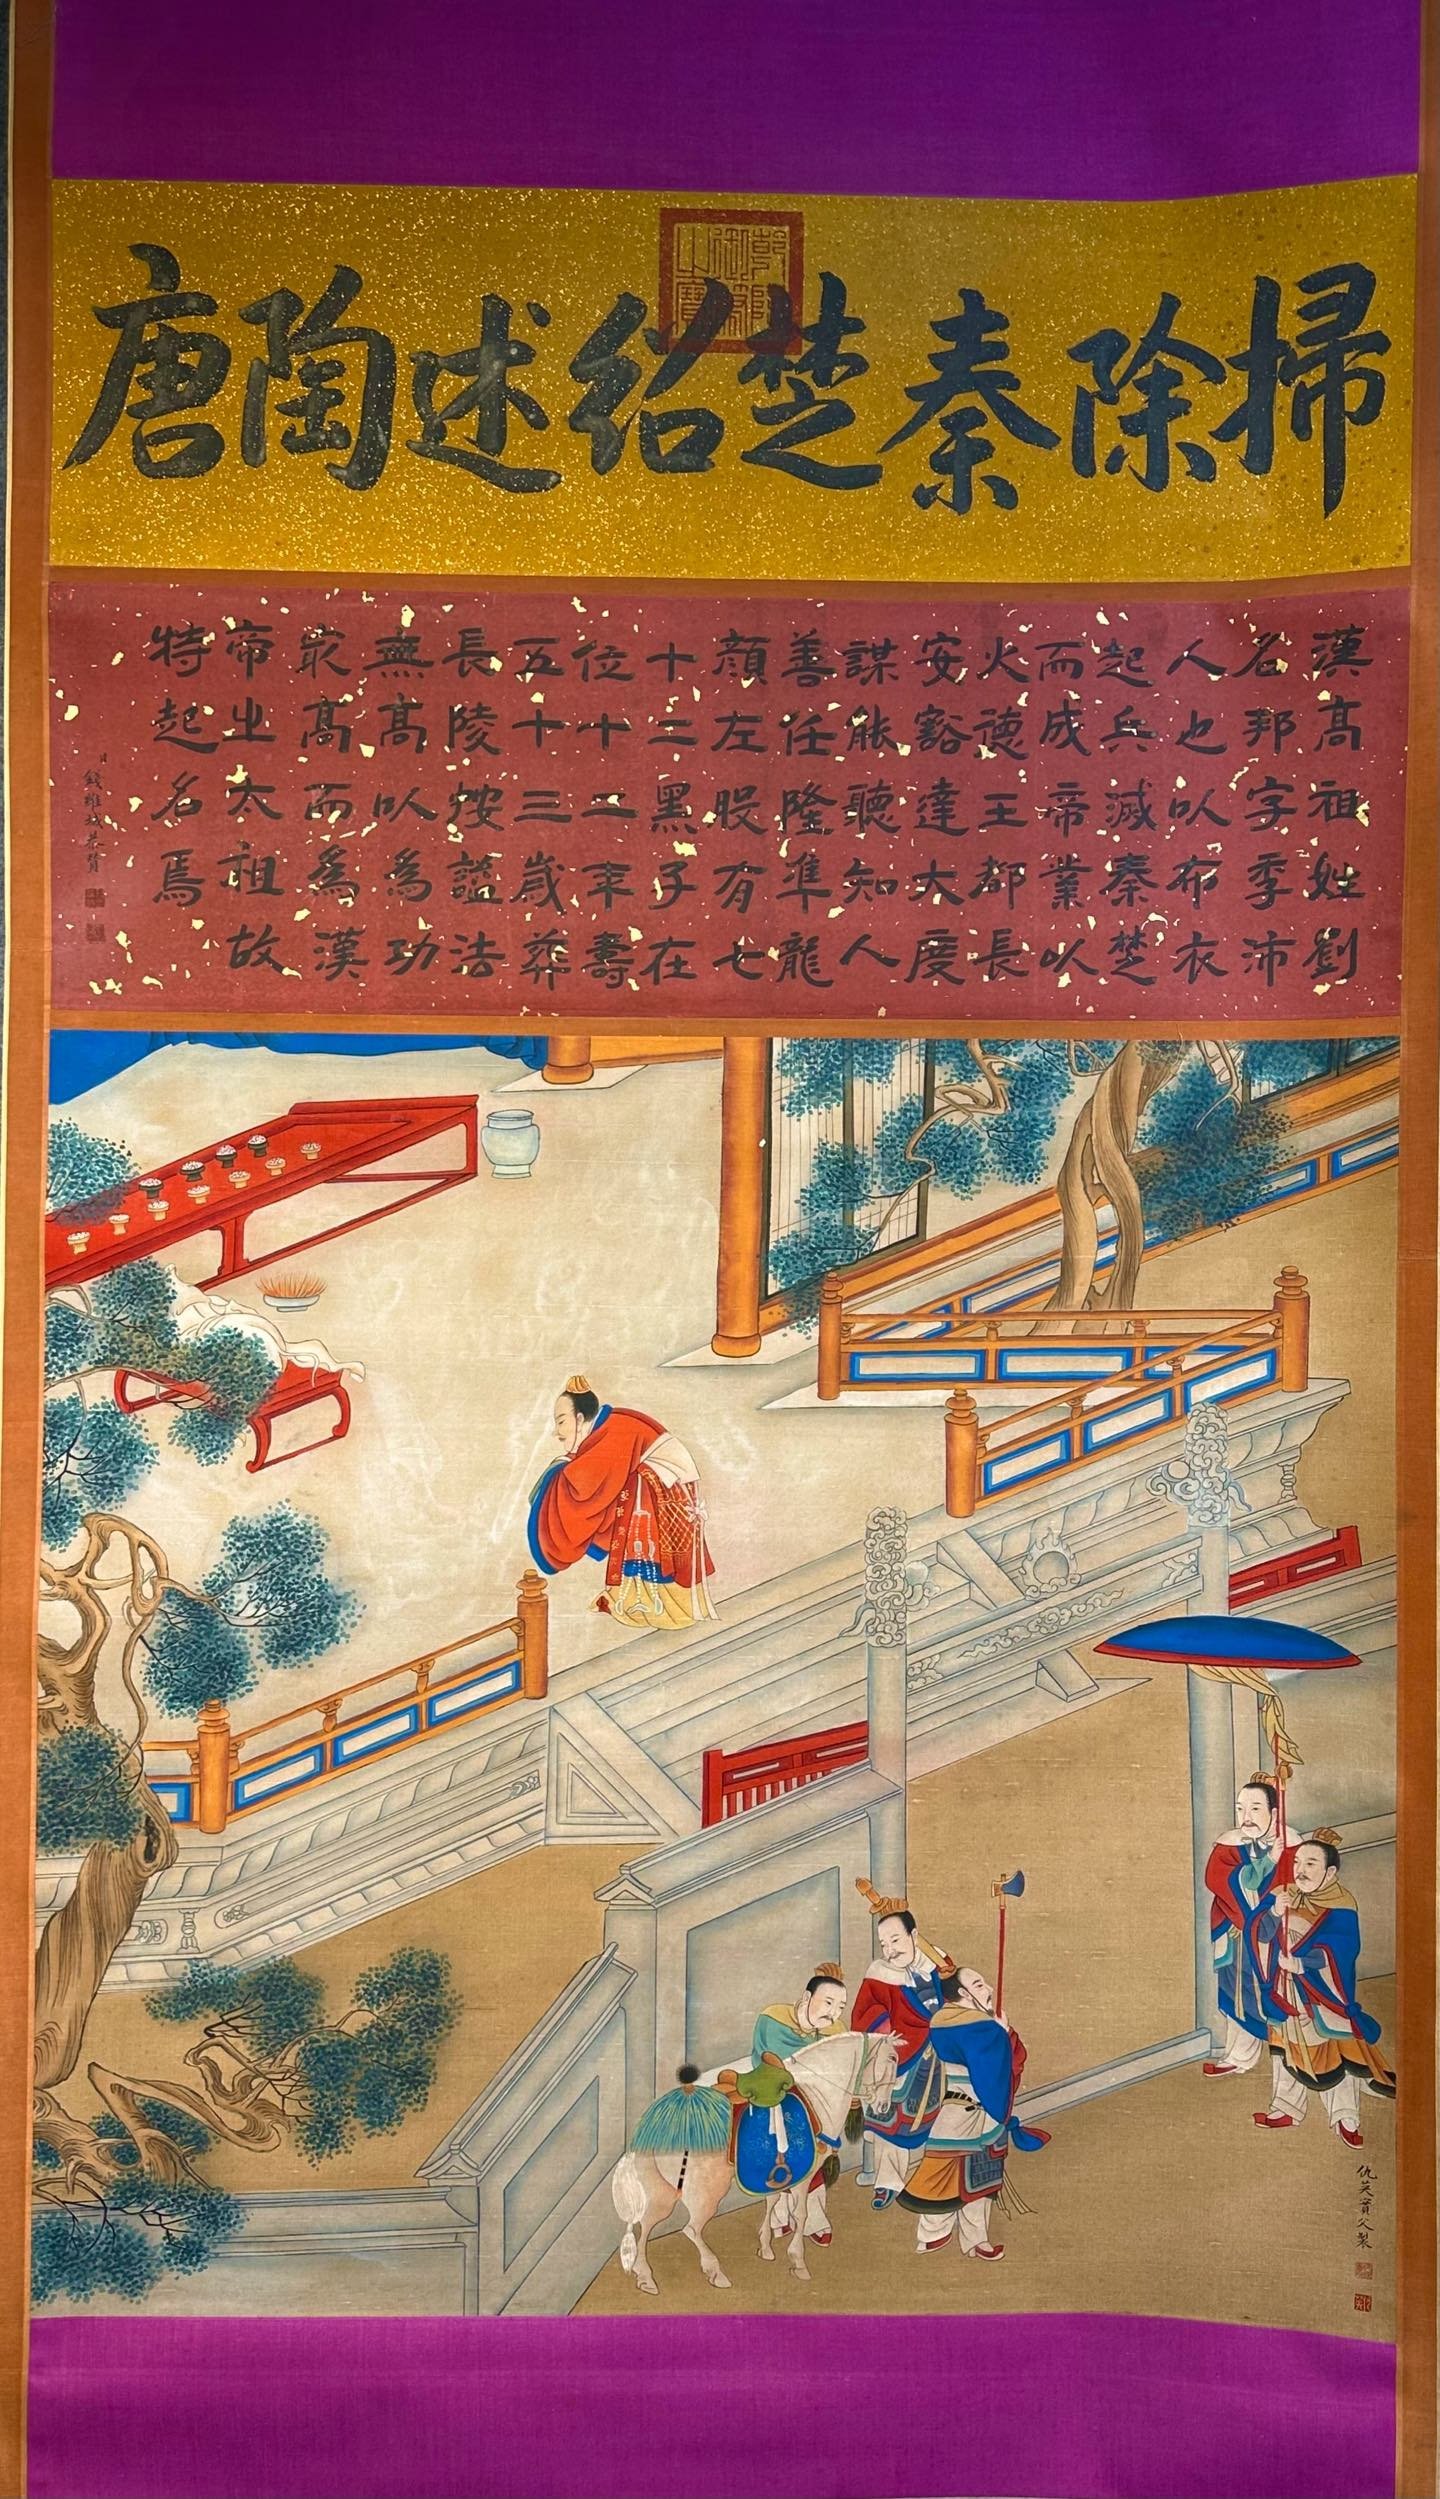 掃除秦楚紹述陶唐
漢髙祖姓劉
名邦字季沛
人也以布衣
起兵滅秦楚
而成帝業以
火德王都長
安豁達大度
謀能聽知人
善任隆準龍
顏左股有七
十二黑子在
位十二年壽
五十三歲葬
長陵按謚法
無髙以為功
㝡髙而為漢
帝之太祖故
特起名焉
錢維城恭贊
仇英實父製